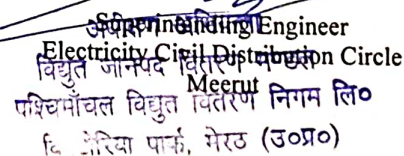 अधीक्षण अभियन्ता
Superintending Engineer
Electricity Civil Distribution Circle
विद्युत जानपद वितरण मण्डल
Meerut
पश्चिमाँचल विद्युत वितरण निगम लि०
पार्क, मेरठ (उ०प्र०)